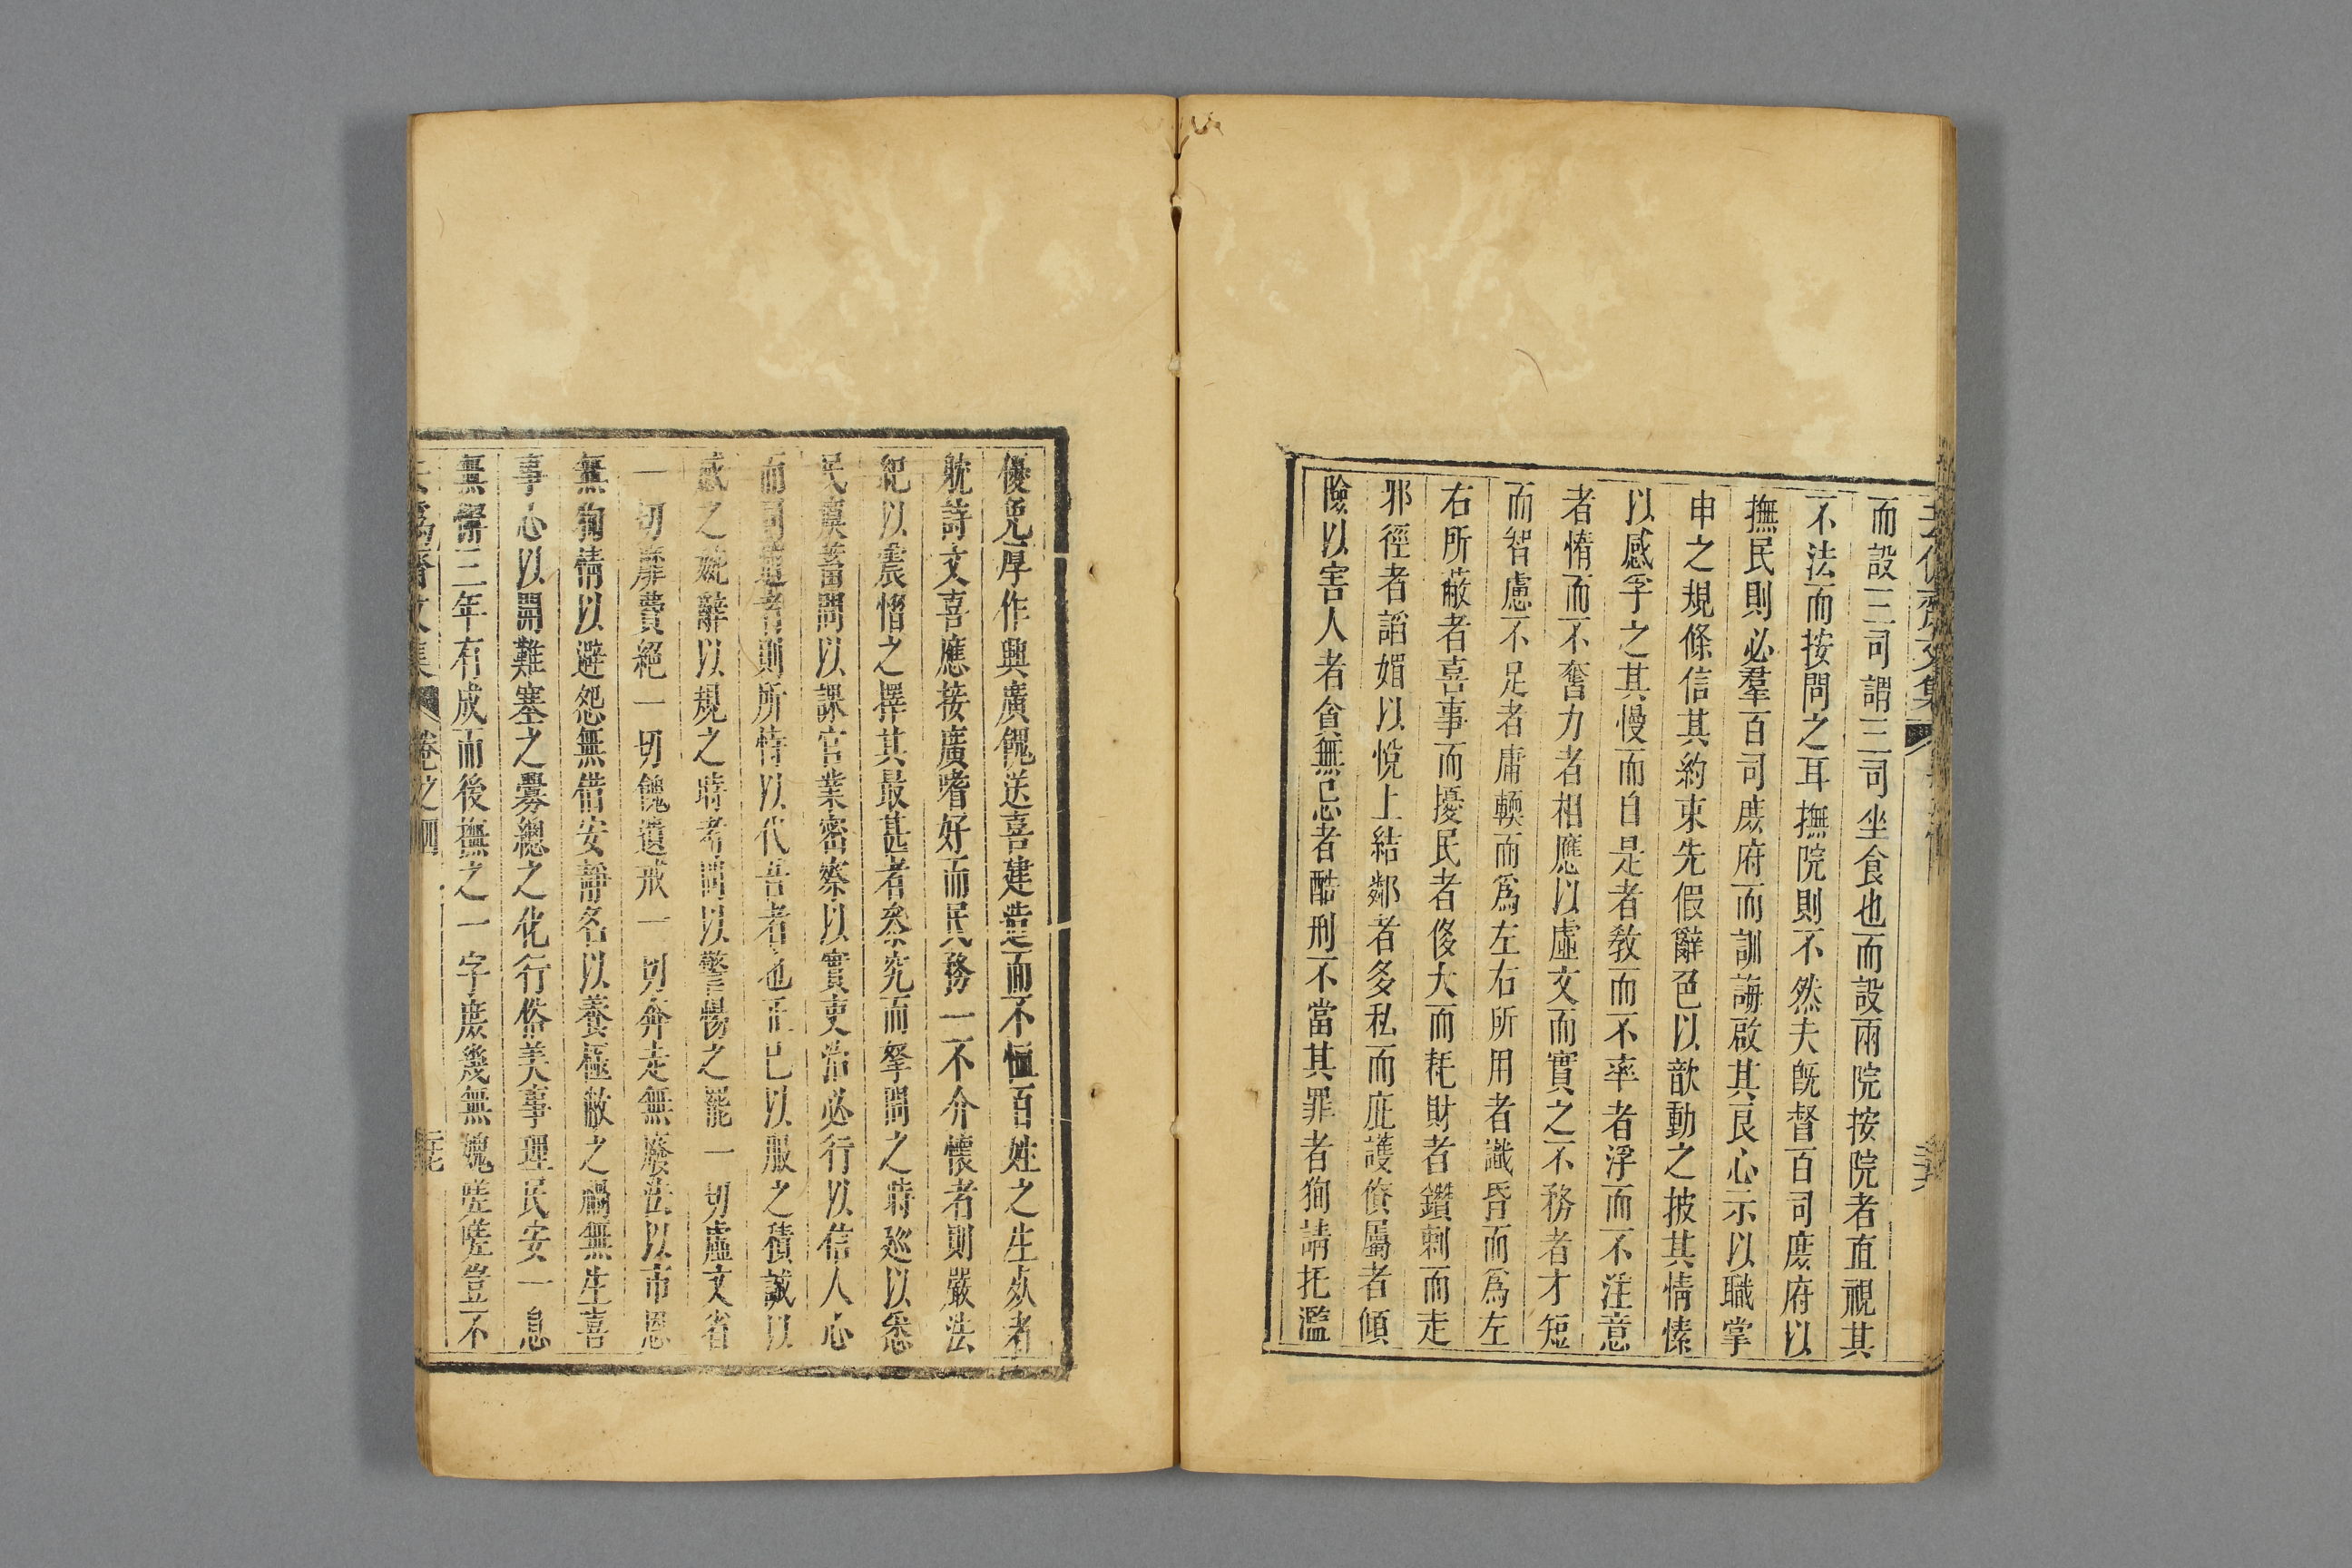 去偽齋文集
而設三司謂三司坐食也而設兩院按院者直視其
不法而按問之耳撫院則不然夫旣督百司庶府以
撫民則必羣百司庶府而訓誨啟其良心示以職掌
申之規條信其約束先假辭色以歆動之披其情愫
以感孚之其慢而自是者敎而不率者浮而不注意
者惰而不奮力者相應以虛文而實之不務者才短
而智慮不足者庸輭而爲左右所用者識昏而爲左
右所蔽者喜事而擾民者侈大而耗財者鑽刺而走
邪徑者謟媚以悅上結鄰者多私而庇護儧屬者傾
險以害人者貪無忌者酷刑不當其罪者狥請托濫
優免厚作興廣餽送喜建造而不恤百姓之生死者
躭詩文喜應接廣嗜好而民務一不介懷者則嚴法
紀以震慴之擇其最甚者叅究而拏問之時巡以悉
民瘼蓄問以課官業密察以實吏治必行以信人心
而司道者則所恃以代吾者也正已以服之積誠以
感之婉辭以規之時考問以警惕之罷一切虛文省
一切靡費絕一切餽遺戒一切奔走無廢法以市恩
無狥情以避怨無借安靜名以養極敝之禍無生喜
事心以開難塞之釁總之化行俗美事理民安一息
無懈三年有成而後撫之一字庶幾無媿嗟嗟豈不
去偽齋文集 卷之四